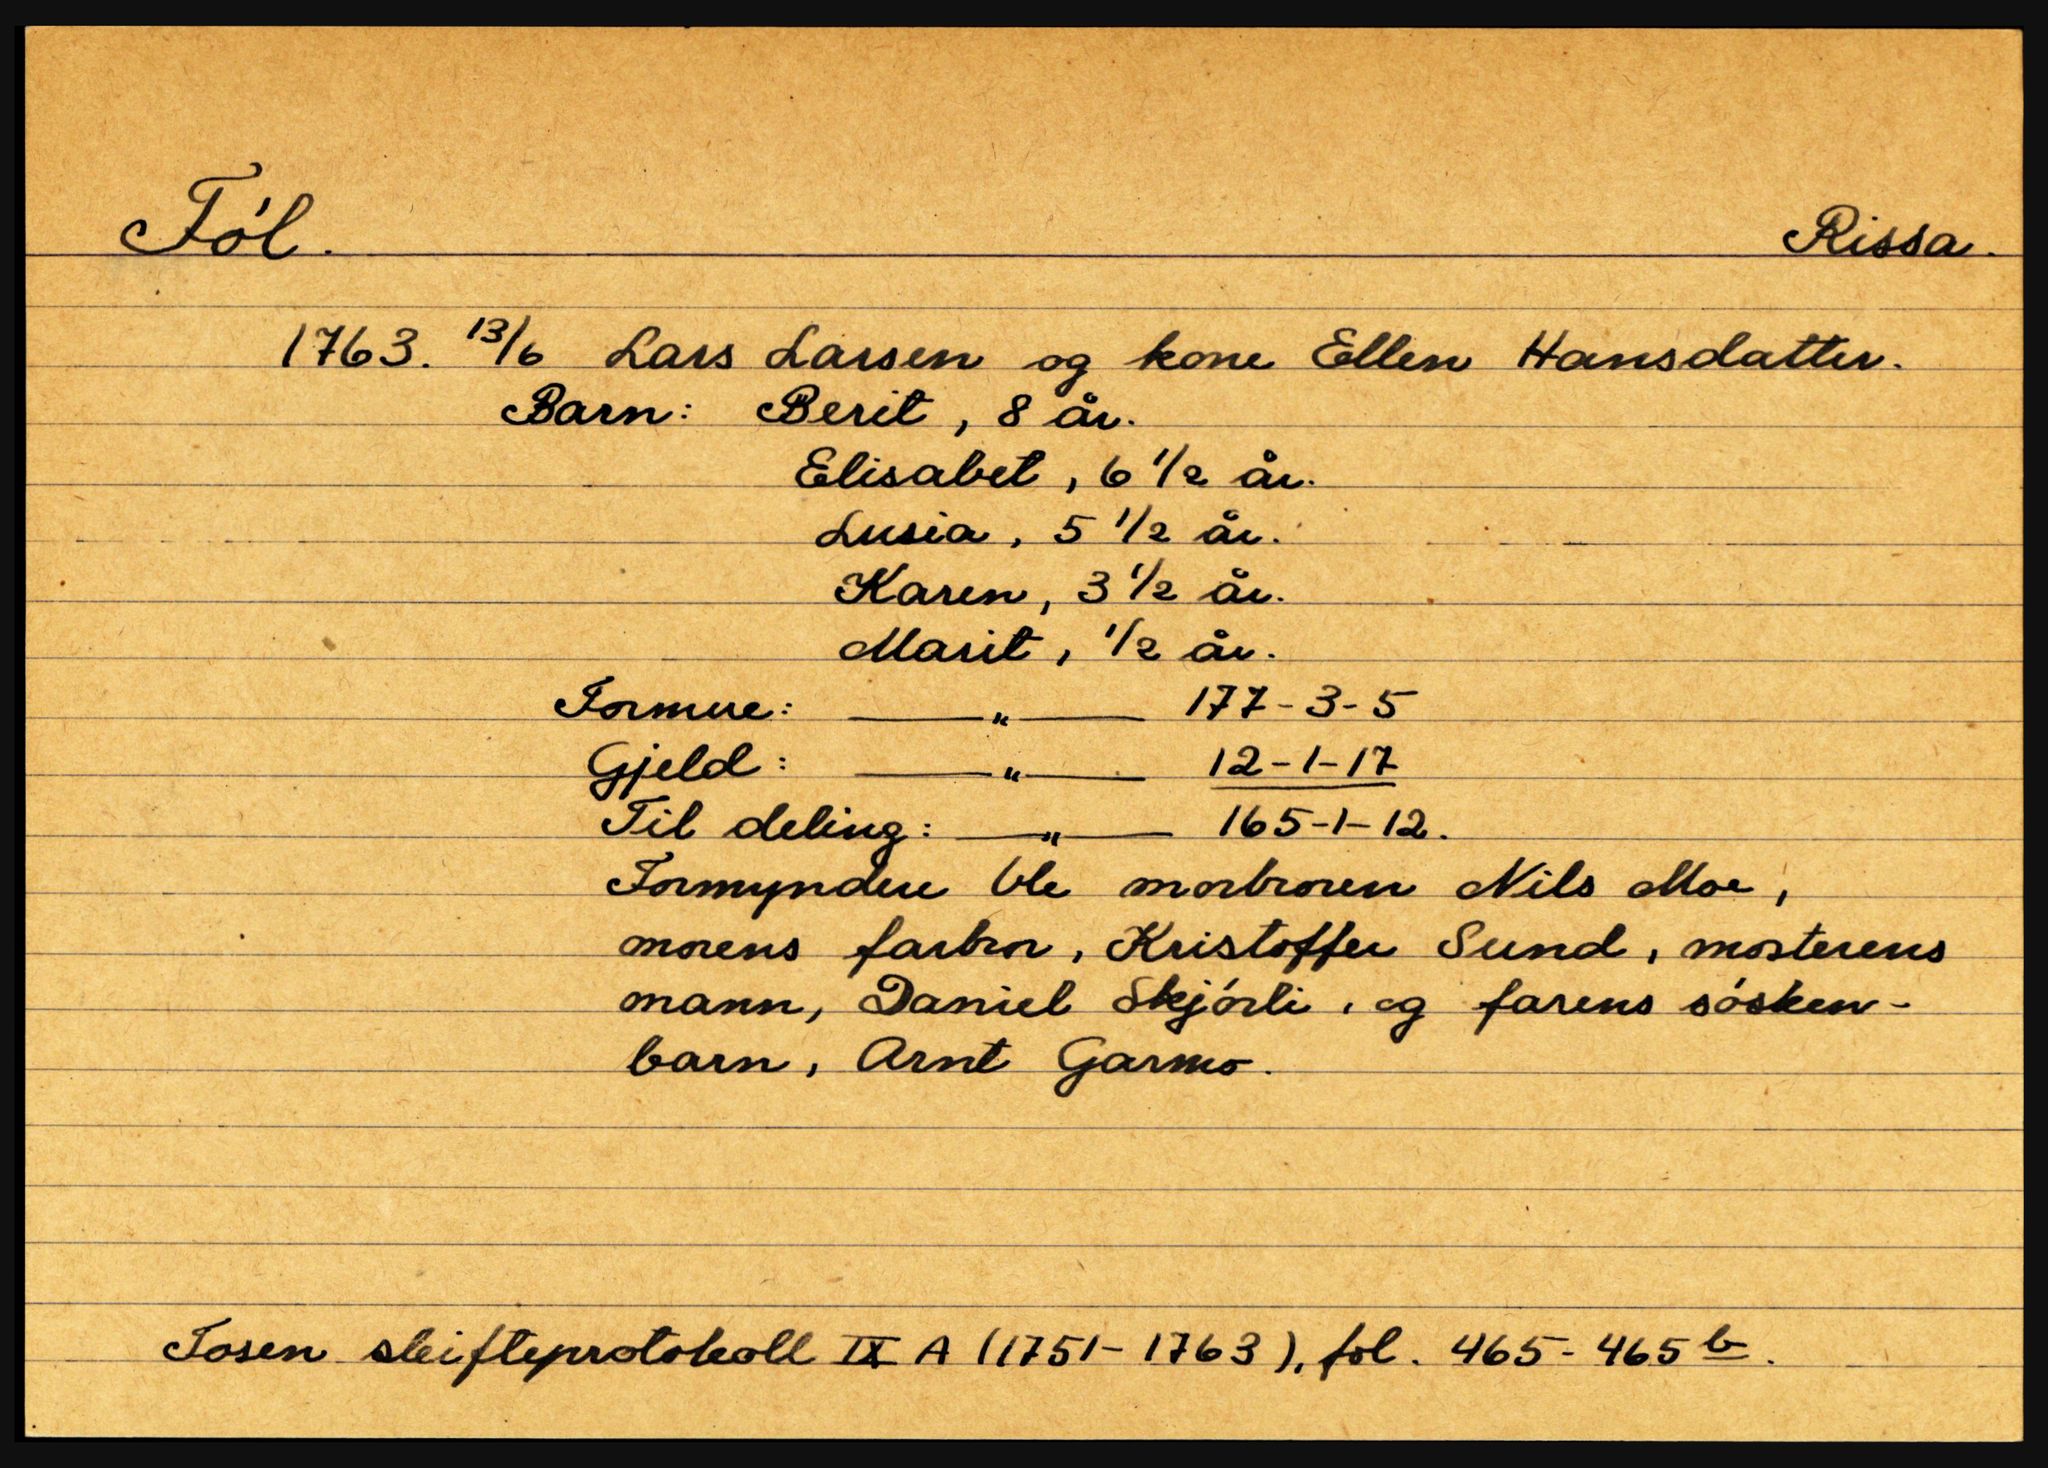 Föl. Rissa.
1763. 13/6 Lars Larsen og kone Ellen Hansdatter.
Barn: Berit, 8 år.
Elisabet, 6 1/2 år.
Lusia, 5 1/2 år.
Karen, 3 1/2 år.
Marit, 1/2 år.
Formue: —„— 177-3-5
Gjeld: —„— 12-1-17
Til deling: —„— 165-1-12.
Formyndere ble morbroren Nils Moe,
morens farbror, Kristoffer Sund, mosterens
mann, Daniel Skjórli, og farens sósken-
barn, Arnt Garmo.
Fosen skifteprotokoll IX A (1751-1763), fol. 465-465b.